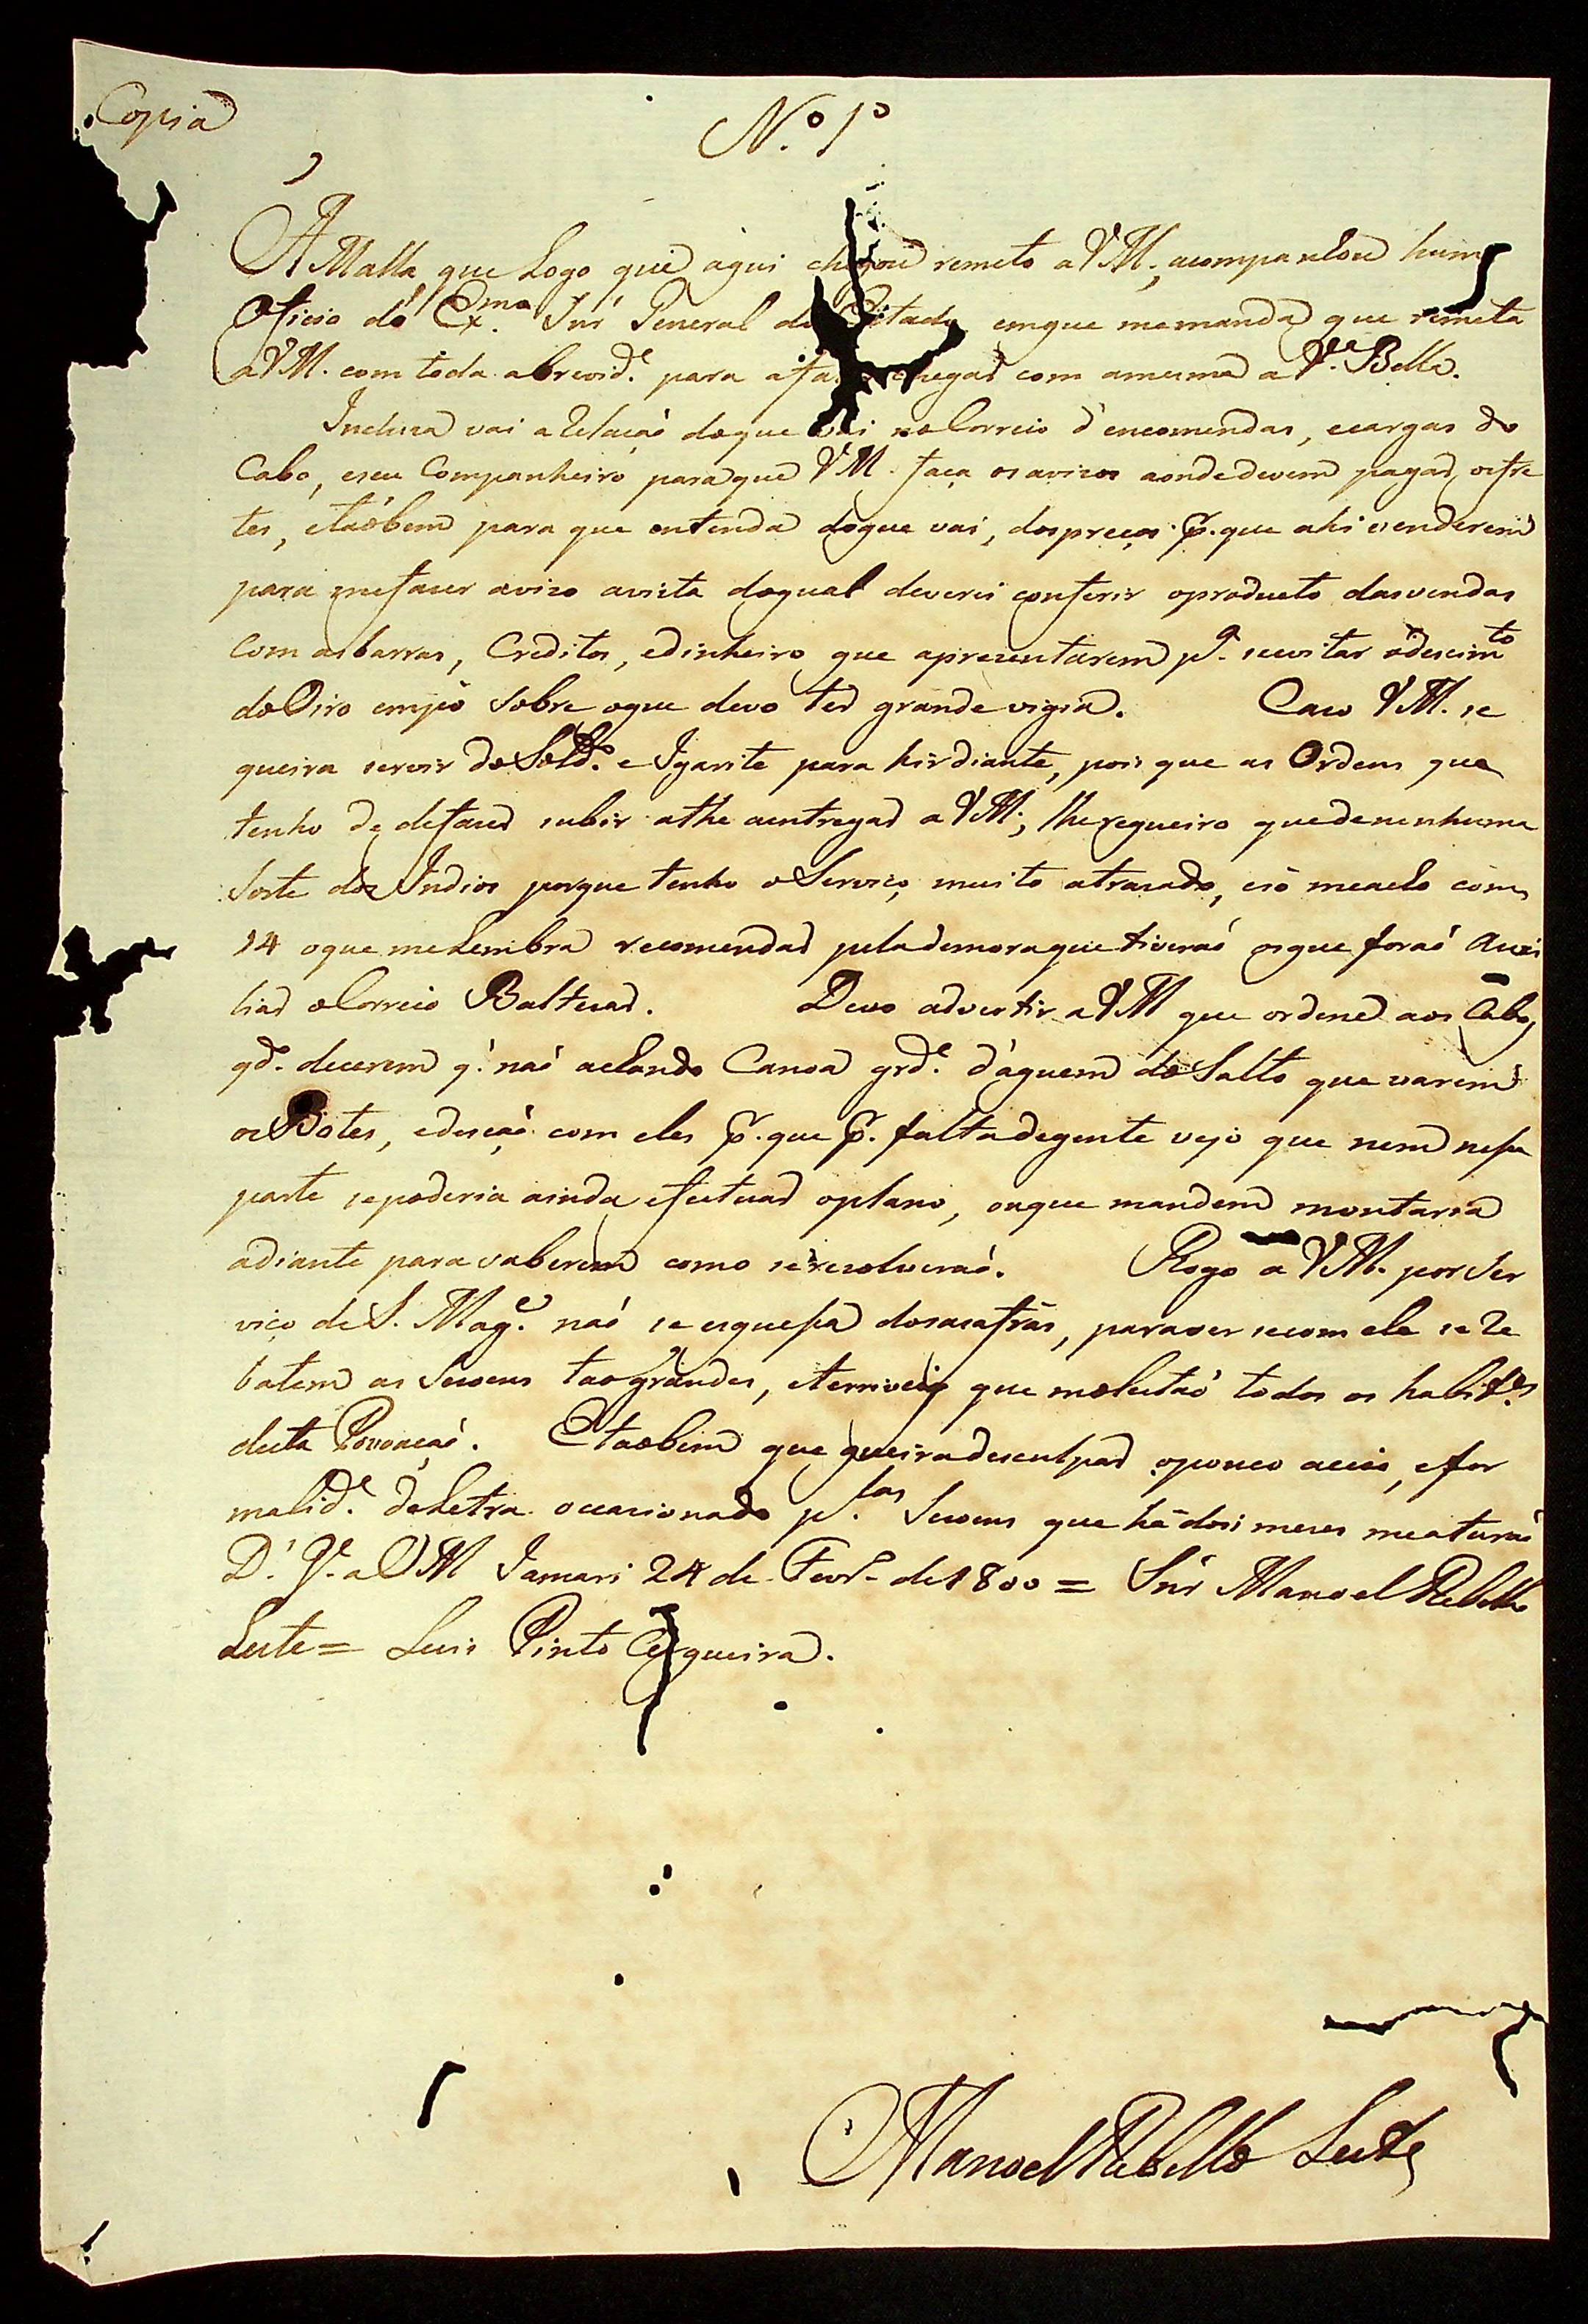 Copia
N.º 1º
A Malla que Logo que aqui chegou remeto a VM., acompanhou hum
Oficio do Ex.mo Snr' General do Estado emque memanda que remeta
aVM. com toda abrevid.e para afazer chegar com amesma a V.a Bella.
Incluza vai aRelaçaõ doque vai noCorreio d'encomendas, ecargas do
Cabo, eseu Companheiro paraque VM. faça os avizos aondedevem pagar osfre
tes, etaõbem para que entenda doque vai, dospreços p.r que ahi venderem
para mefazer avizo avista doqual deverei conferir oproducto dasvendas
Com asbarras, Creditos, edinheiro que aprezentarem p.a seevitar odescim.to
doOiro empó sobre oque devo ter grande vigia. Cazo VM. se
queira servir doSold.o e Igarite para hirdiante, pois que as Ordens que
tenho he defazer subir athe aentregar a VM., lherequeiro quedenenhuma
Sorte dos Indios porque tenho oServiço muito atrazado, esó meacho com
14 oque meLembra recomendar pelademoraque tiveraõ osque foraõ Auxi
liar oCorreio Baltezar. Devo advertir aVM que ordene aos Cabos
q.do decerem q' naõ achando Canoa grd.e d'aquem do Salto que varem
osBotes, edesçaõ com eles p.r que p.r faltadegente vejo que nem nessa
parte sepoderia ainda efetuar oplano, ouque mandem montaria
adiante para saberem como seresolveraõ. Rogo a VM. por Ser
viço de S. Mag.e naõ se esquessa dosasafrás, paraver secom ele se Re
batem as Sezoens taõgrandes, eterriveis que molestaõ todos os habit.es
desta Povoaçaõ. Etaõbem que queiradesculpar opouco aceio, efor
malid.e daLetra occazionado p.las Sezoens que há dois mezes meaturaõ
D.s G.e a VM Jamari 24 de Fevr.o de1800 = Snr' Manoel Rebello
Leite = Luis Pinto Cerqueira.
Manoel Rebello Leite